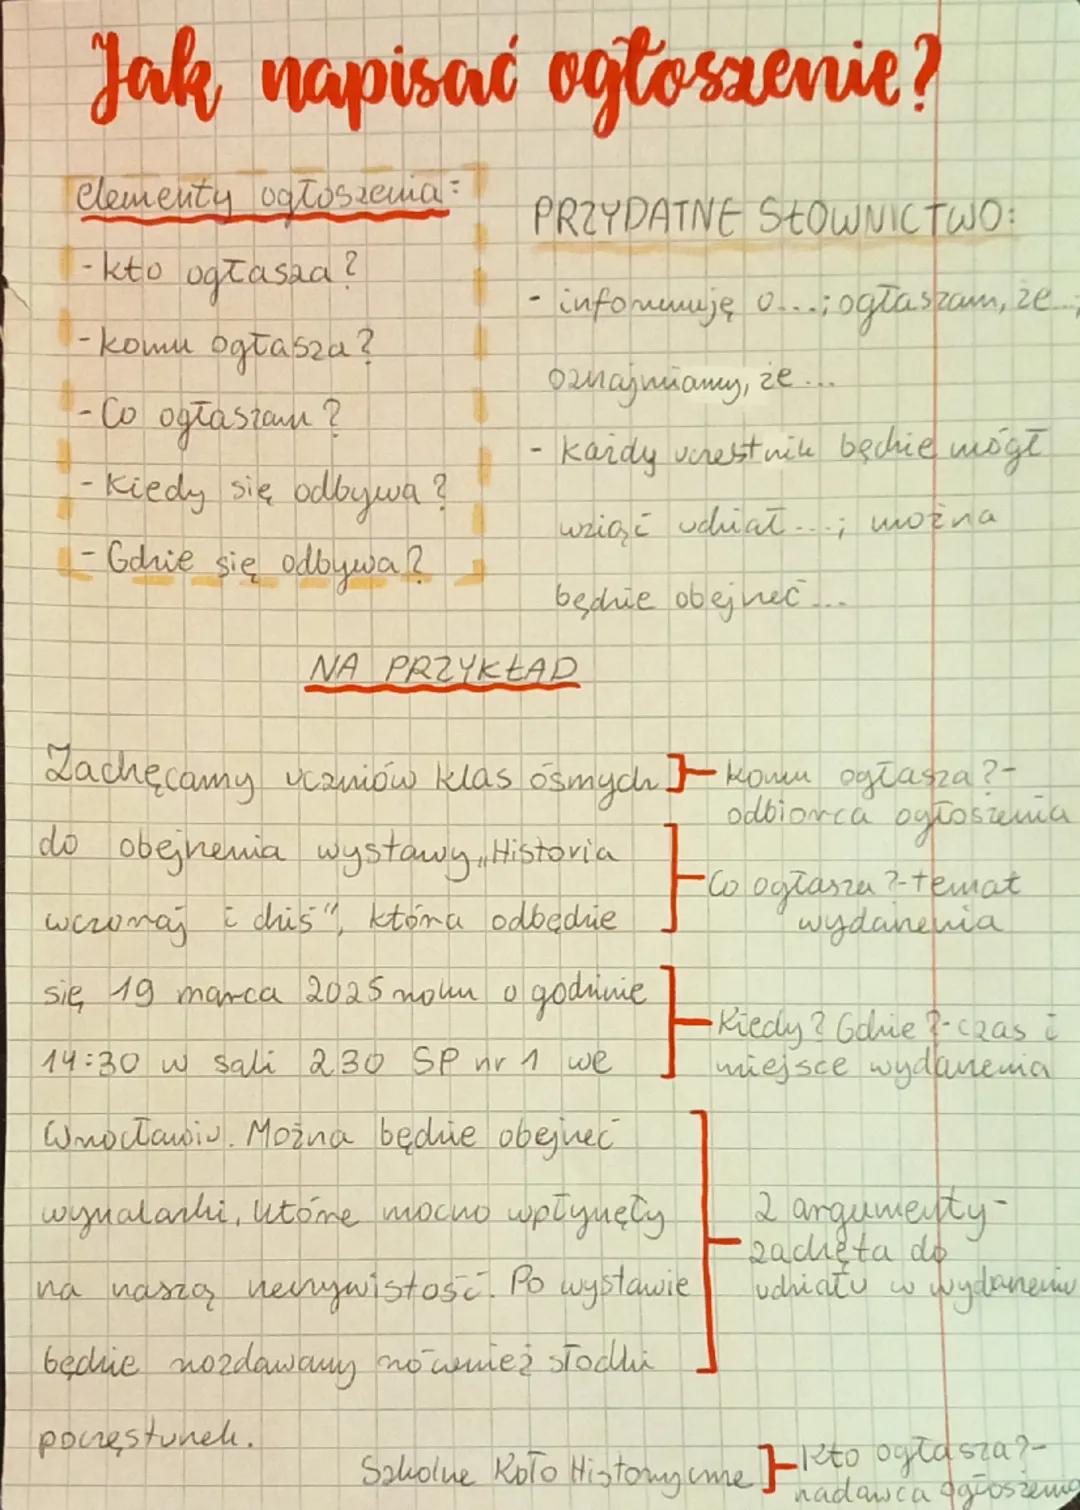 Jak napisać ogłoszenie?
elementy ogłoszenia:
- kto ogłasza?
- komu ogłasza?
- Co ogłaszam?
- Kiedy się odbywa?
- Gdzie się odbywa?
PRZYDATNE SŁOWNICTWO:
- informuję o...; ogłaszam, że...;
oznajmiamy, że...
- każdy uczestnik będzie mógł
wziąć udział...; można
będzie obejrzeć...
NA PRZYKŁAD
Zachęcamy uczniów klas ósmych
do obejrzenia wystawy „Historia
wczoraj i dziś", która odbędzie
się 19 marca 2025 roku o godzinie
14:30 w sali 230 SP nr 1 we
Wrocławiu. Można będzie obejrzeć
wynalazki, które mocno wpłynęły
na naszą rzeczywistość. Po wystawie
będzie rozdawany również słodki
poczęstunek.
Szkolne Koło Historyczne
Komu ogłasza?-
odbiorca ogłoszenia
Co ogłasza?-temat
wydarzenia
Kiedy? Gdzie?-czas i
miejsce wydarzenia
2 argumenty-
zachęta do
udziału w wydarzeniu
Kto ogłasza?-
nadawca ogłoszenia